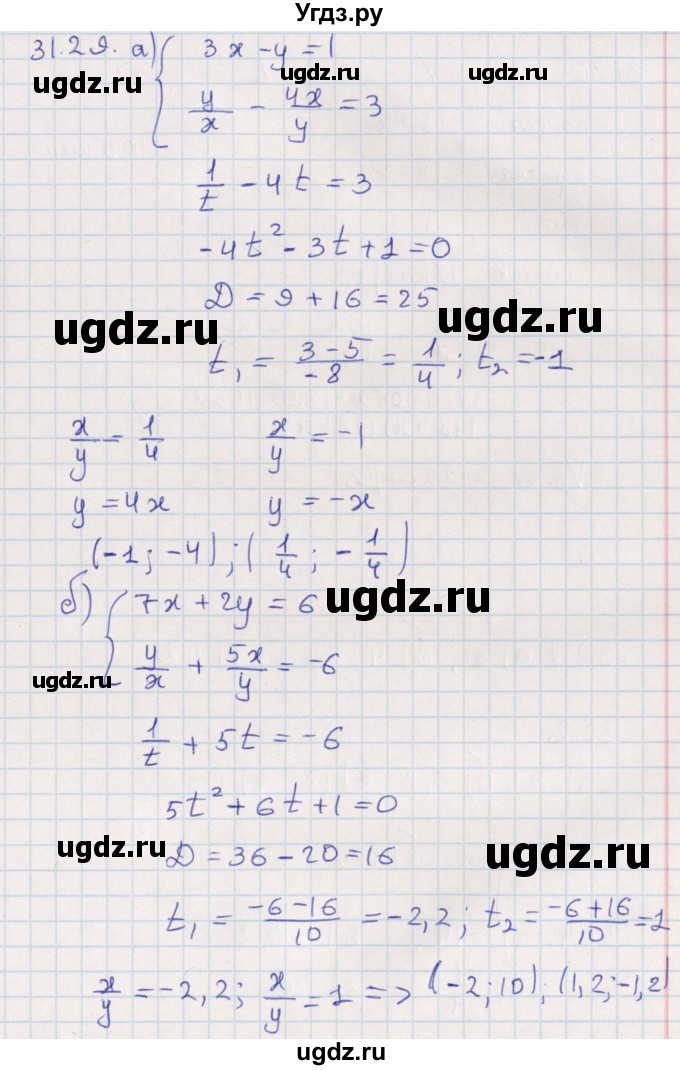 Угдз.ру
31.29. а) { 3x - y = 1
ugdz.ru ugdz.ru
y/x - 4x/y = 3
1/t - 4t = 3
-4t² - 3t + 1 = 0
D = 9 + 16 = 25
ugdz.ru ugdz.ru
t₁ = (3 - 5)/-8 = 1/4; t₂ = -1
x/y = 1/4 x/y = -1
y = 4x y = -x
(-1; -4); (1/4; -1/4)
б) { 7x + 2y = 6
ugdz.ru
y/x + 5x/y = -6
ugdz.ru
1/t + 5t = -6
5t² + 6t + 1 = 0
ugdz.ru ugdz.ru
D = 36 - 20 = 16
t₁ = (-6 - 16)/10 = -2,2; t₂ = (-6 + 16)/10 = 1
x/y = -2,2; x/y = 1 => (-2; 10); (1,2; -1,2)
ugdz.ru